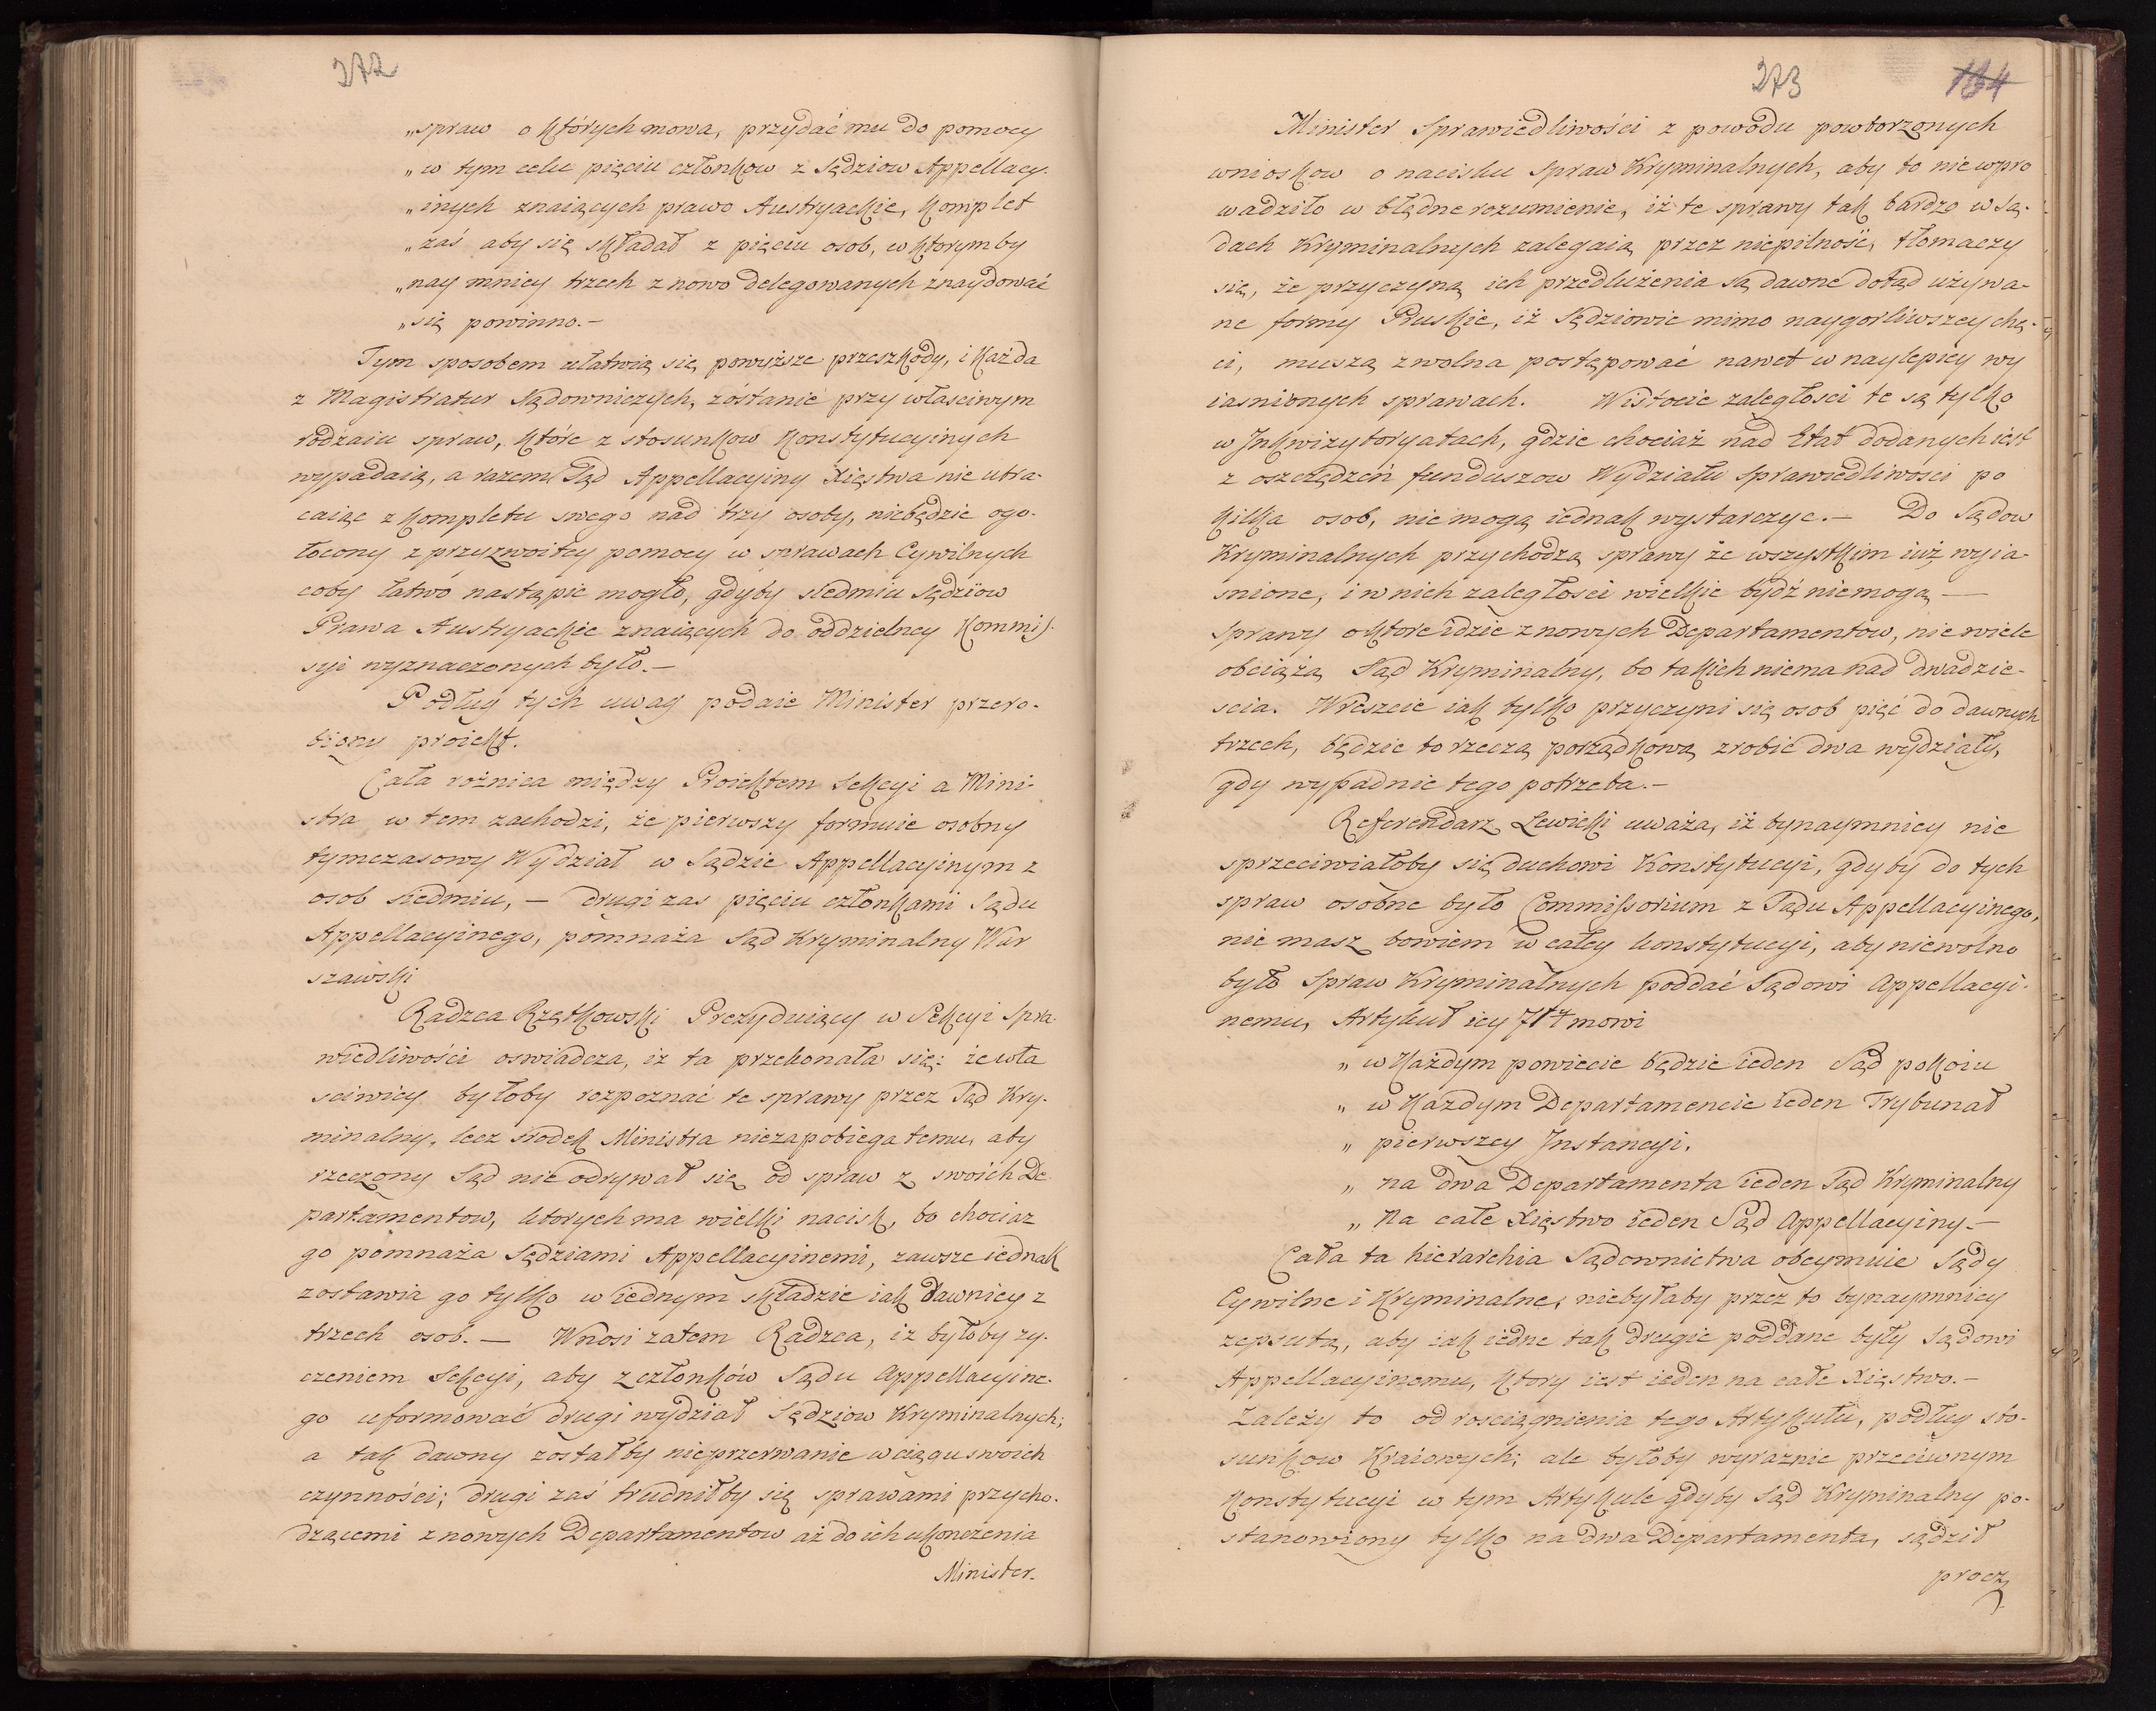 272
„spraw o których mowa, przydać mu do pomocy
„w tym celu pięciu członkow z Sędziow Appellacy-
„inych znaiących prawo Austryackie, komplet
„zaś aby się składał z pięciu osob, w ktorymby
„nay mniey trzech z nowo delegowanych znaydować
„się powinno.—
Tym sposobem ułatwią się powyższe przeszkody, i każda
z Magistratur Sądowniczych, zostanie przy właściwym
rodzaiu spraw, które z stosunkow Konstytucyinych
wypadaią, a razem Sąd Appellacyiny Xięstwa nie utra-
caiąc z kompletu swego nad trzy osoby, niebędzie ogo-
łocony z przyzwoitey pomocy w sprawach Cywilnych
coby łatwo nastąpić mogło, gdyby siedmiu Sędziow
Prawa Austryackie znaiących do oddzielney Kommis-
syi wyznaczonych było.—
Podług tych uwag podaie Minister przero-
biony proiekt.
Cała rożnica między Proiektem Sekcyi a Mini-
stra w tem zachodzi, że pierwszy formuie osobny
tymczasowy Wydział w Sądzie Appellacyinym z
osob siedmiu, — drugi zas pięciu członkami Sądu
Appellacyinego, pomnaża Sąd Kryminalny War
szawski
Radzca Rzętkowski Prezyduiący w Sekcyi Spra-
wiedliwości oswiadcza, iż ta przekonała się: że wła
sciwiey byłoby rozpoznać te sprawy przez Sąd Kry-
minalny, lecz srodek Ministra niezapobiega temu, aby
rzeczony Sąd nie odrywał się od spraw z swoich De-
partamentow, ktorych ma wielki nacisk, bo chociaz
go pomnaża Sędziami Appellacyinemi, zawsze iednak
zostawia go tylko w iednym składzie iak dawniey z
trzech osob.— Wnosi zatem Radzca, iż byłoby zy-
czeniem Sekcyi, aby z członków Sądu Appellacyine-
go uformować drugi wydział Sędziow Kryminalnych;
a tak dawny zostałby nieprzerwanie w ciągu swoich
czynności; drugi zaś trudniłby się sprawami przycho-
dzącemi z nowych Departamentow aż do ich ukonczenia
Minister.
273 164
Minister Sprawiedliwości z powodu powtorzonych
wnioskow o nacisku Spraw Kryminalnych, aby to niewpro
wadziło w błędne rozumienie, iż te sprawy tak bardzo w Są-
dach Kryminalnych zalegaią przez niepilność, tłomaczy
się, że przyczyną ich przedłużenia są dawne dotąd używa-
ne formy Pruskie, iż Sędziowie mimo naygorliwszey chę-
ci, muszą zwolna postępować nawet w naylepiey wy
iasnionych sprawach. Wistocie zaległosci te są tylko
w Jnkwizytoryatach, gdzie chociaż nad Etat dodanych iest
z oszczędzeń funduszow Wydziału Sprawiedliwosci po
kilka osob, nie mogą iednak wystarczyc.— Do Sądow
Kryminalnych przychodzą sprawy ze wszystkim iuż wyia-
snione, i w nich zaległosci wielkie bydź niemogą —
Sprawy o które idzie z nowych Departamentow, nie wiele
obciążą Sąd Kryminalny, bo takich niema nad dwadzie-
scia. Wreszcie iak tylko przyczyni się osob pięć do dawnych
trzech, będzie to rzeczą porządkową zrobić dwa wydziały,
gdy wypadnie tego potrzeba.—
Referendarz Lewicki uważa, iż bynaymniey nie
sprzeciwiałoby się duchowi Konstytucyi, gdyby do tych
spraw osobne było Commissorium z Sądu Appellacyinego,
nie masz bowiem w całey konstytucyi, aby niewolno
było Spraw Kryminalnych poddać Sądowi Appellacyi-
nemu, Artykuł iey 74 mowi
„w każdym powiecie będzie ieden Sąd pokoiu
„w każdym Departamencie ieden Trybunał
„pierwszey Jnstancyi.
„na dwa Departamenta ieden Sąd Kryminalny
„Na całe Xięstwo ieden Sąd Appellacyiny.—
Cała ta hierarchia Sądownictwa obeymuie Sądy
Cywilne i Kryminalne, niebyłaby przez to bynaymniey
zepsutą, aby iak iedne tak drugie poddane były Sądowi
Appellacyinemu, ktory iest ieden na całe Xięstwo.—
Zależy to od rosciągnienia tego Artykułu, podług sto-
sunkow Kraiowych; ale byłoby wyraznie przeciwnym
Konstytucyi w tym Artykule gdyby Sąd Kryminalny po-
stanowiony tylko na dwa Departamenta, sądził
procz